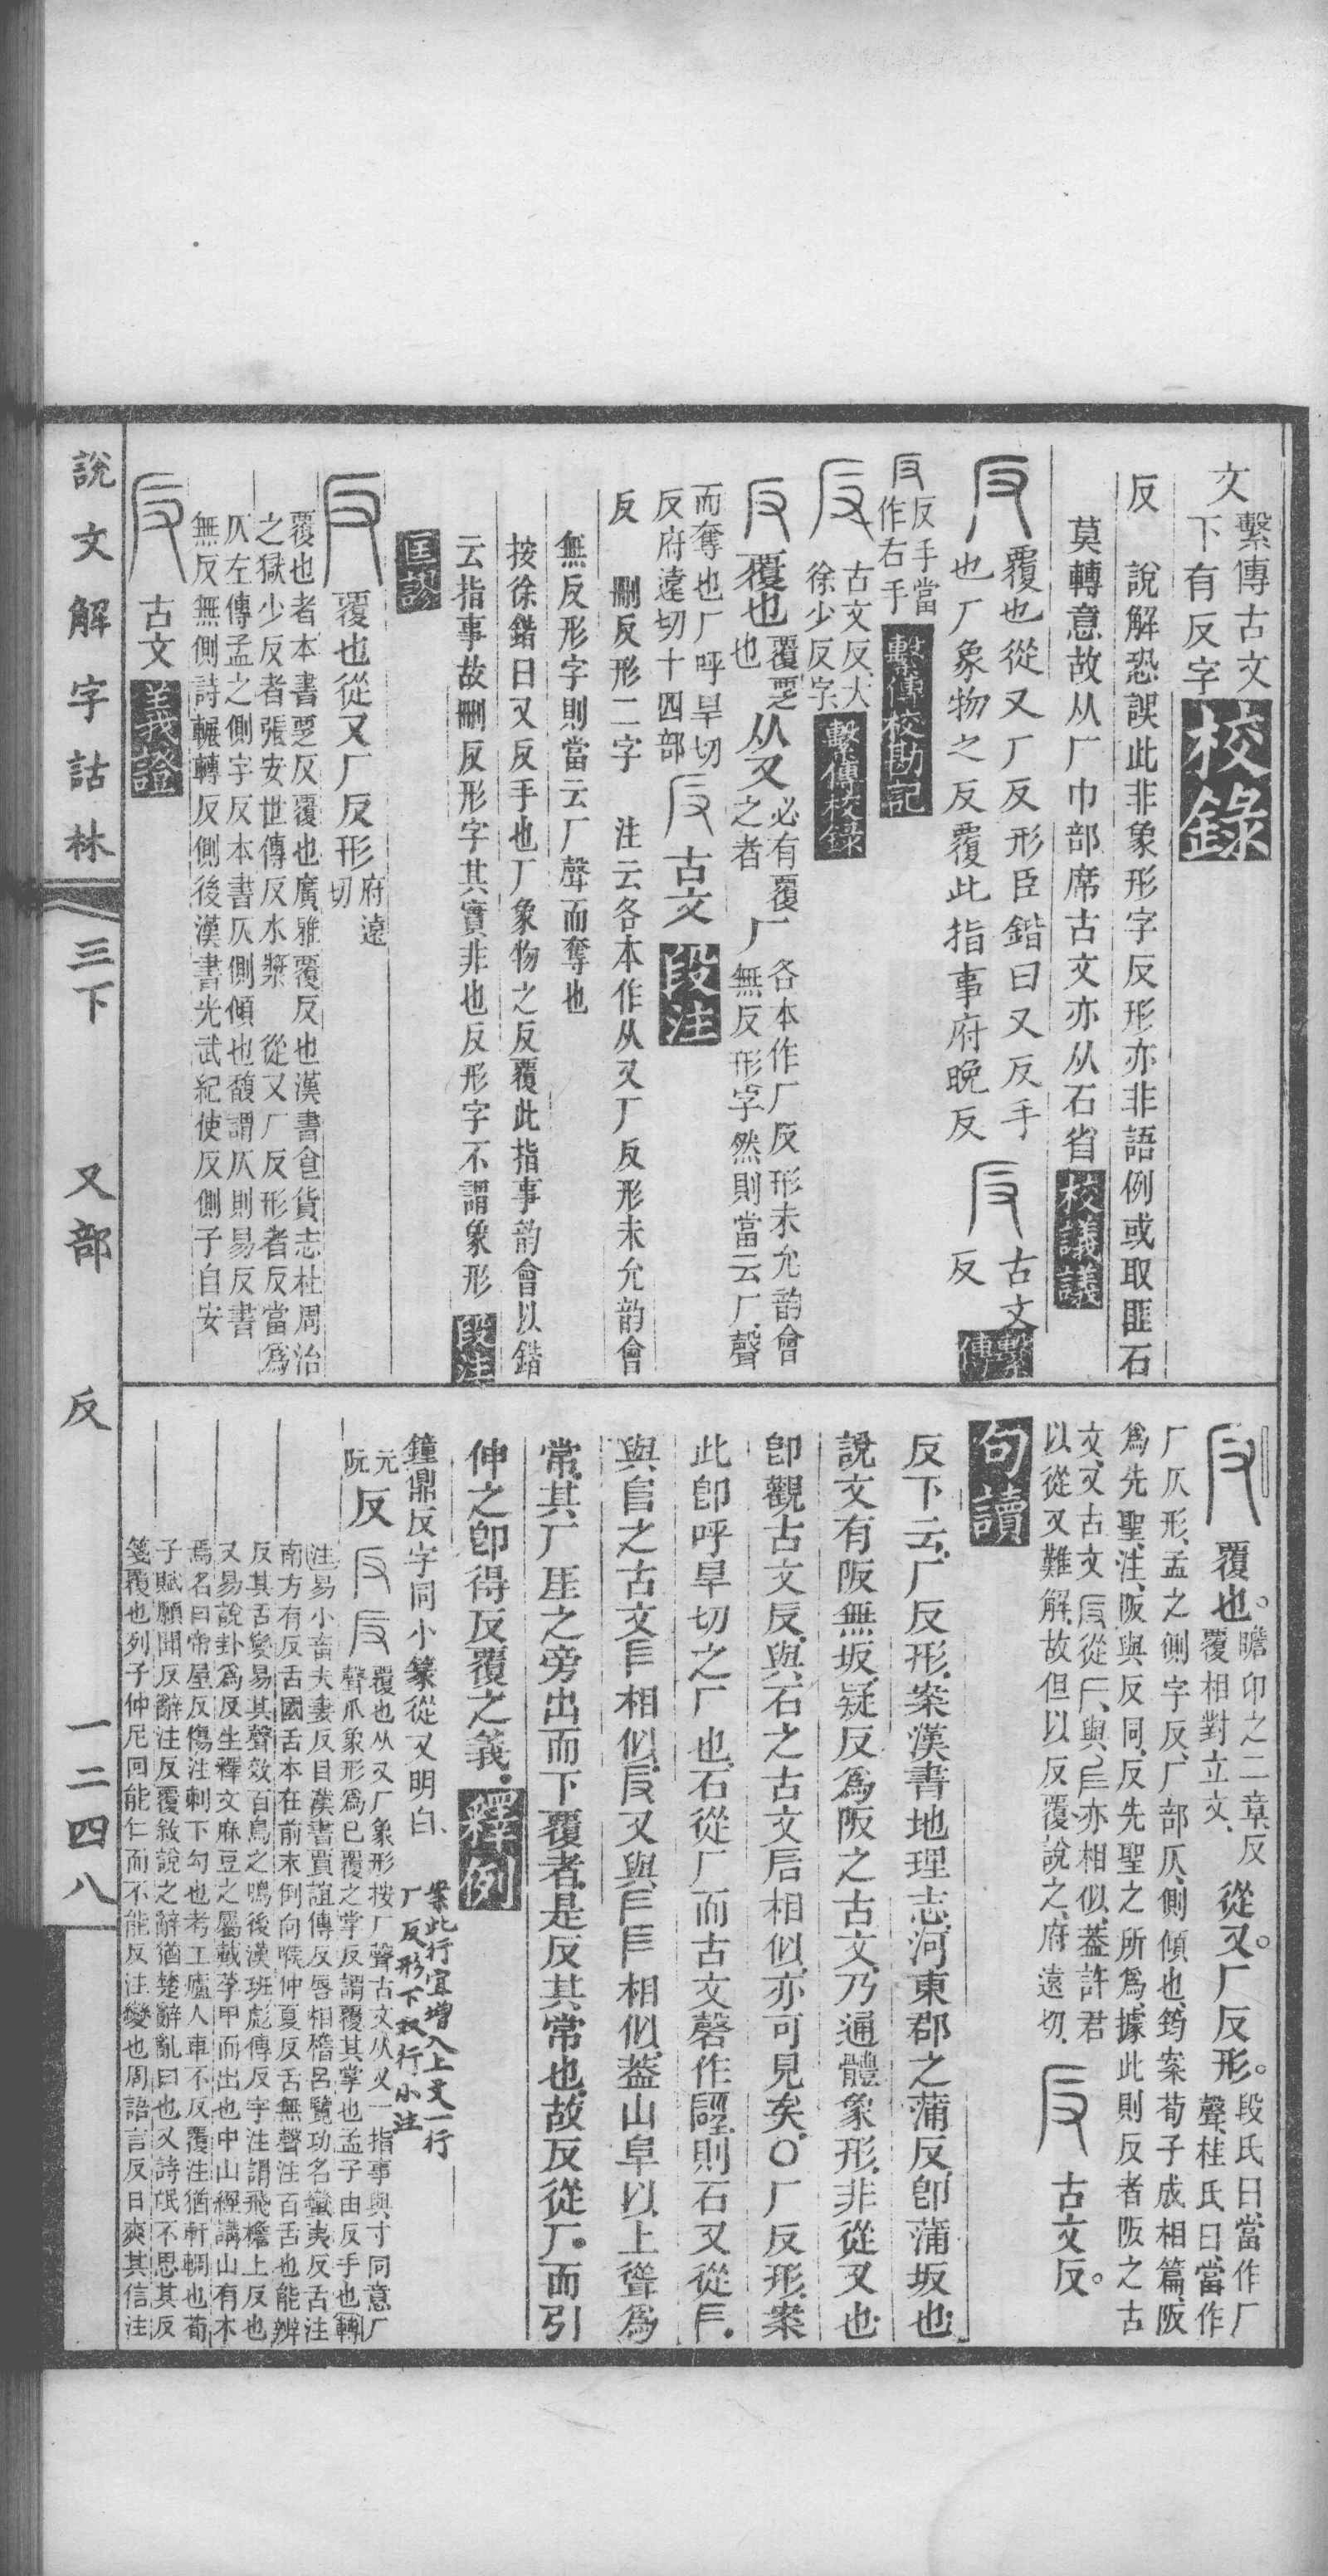 文 繫傳古文
下有反字 校錄
反 說解恐誤此非象形字反形亦非語例或取匪石
莫轉意故从厂巾部席古文亦从石省 校議議
覆也從又厂反形臣鍇曰又反手
也厂象物之反覆此指事府晚反 古文
反 繫傳
反手當
作右手 繫傳校勘記
古文反大
徐少反字 繫傳校錄
覆也 覆覂
也 从又 必有覆
之者 厂 各本作厂反形未允韵會
無反形字然則當云厂聲
而奪也厂呼旱切
反府遠切十四部 古文 段注
反 刪反形二字 注云各本作从又厂反形未允韵會
無反形字則當云厂聲而奪也
按徐鍇曰又反手也厂象物之反覆此指事韵會以鍇
云指事故刪反形字其實非也反形字不謂象形 段注
匡謬
覆也從又厂反形 府遠
切
覆也者本書覂反覆也廣雅覆反也漢書食貨志杜周治
之獄少反者張安世傳反水漿 從又厂反形者反當爲
仄左傳孟之側字反本書仄側傾也馥謂仄則易反書
無反無側詩輾轉反側後漢書光武紀使反側子自安
古文 義證
覆也。 瞻卬之二章反
覆相對立文、 從又。厂反形。 段氏曰、當作厂
聲、桂氏曰、當作
厂仄形、孟之側字反、厂部仄、側傾也、筠案荀子成相篇、阪
爲先聖、注、阪與反同、反先聖之所爲、據此則反者阪之古
文、又古文 從 與 亦相似、葢許君
以從又難解、故但以反覆說之、府遠切、 古文反。
句讀
反下云、厂反形、案漢書地理志、河東郡之蒲反卽蒲坂也、
說文有阪無坂、疑反爲阪之古文、乃通體象形、非從又也、
卽觀古文反、與石之古文后相似、亦可見矣、〇厂反形、案
此卽呼旱切之厂也、石從厂而古文磬作 則石又從
與𠂤之古文 相似、 又與 相似、葢山阜以上聳爲
常、其厂厓之旁出而下覆者、是反其常也、故反從厂。而引
伸之卽得反覆之義。 釋例
鐘鼎反字同小篆從又明白、 案此行宜增入上文一行
厂反形下双行小注
元
阮 反 覆也从又厂象形按厂聲古文从又一指事與寸同意厂
聲爪象形爲已覆之掌反謂覆其掌也孟子由反手也轉
注易小畜夫妻反目漢書賈誼傳反唇相稽呂覽功名蠻夷反舌注
南方有反舌國舌本在前末倒向喉仲夏反舌無聲注百舌也能辨
反其舌變易其聲效百鳥之鳴後漢班彪傳反宇注謂飛檐上反也
又易說卦爲反生釋文麻豆之屬戴莩甲而出也中山經講山有木
焉名曰帝屋反傷注刺下勾也考工廬人車不反覆注猶軒輖也荀
子賦願聞反辭注反覆敘說之辭猶楚辭亂曰也又詩氓不思其反
箋覆也列子仲尼回能仁而不能反注變也周語言反日爽其信注
說文解字詁林 三下 又部 反 一二四八